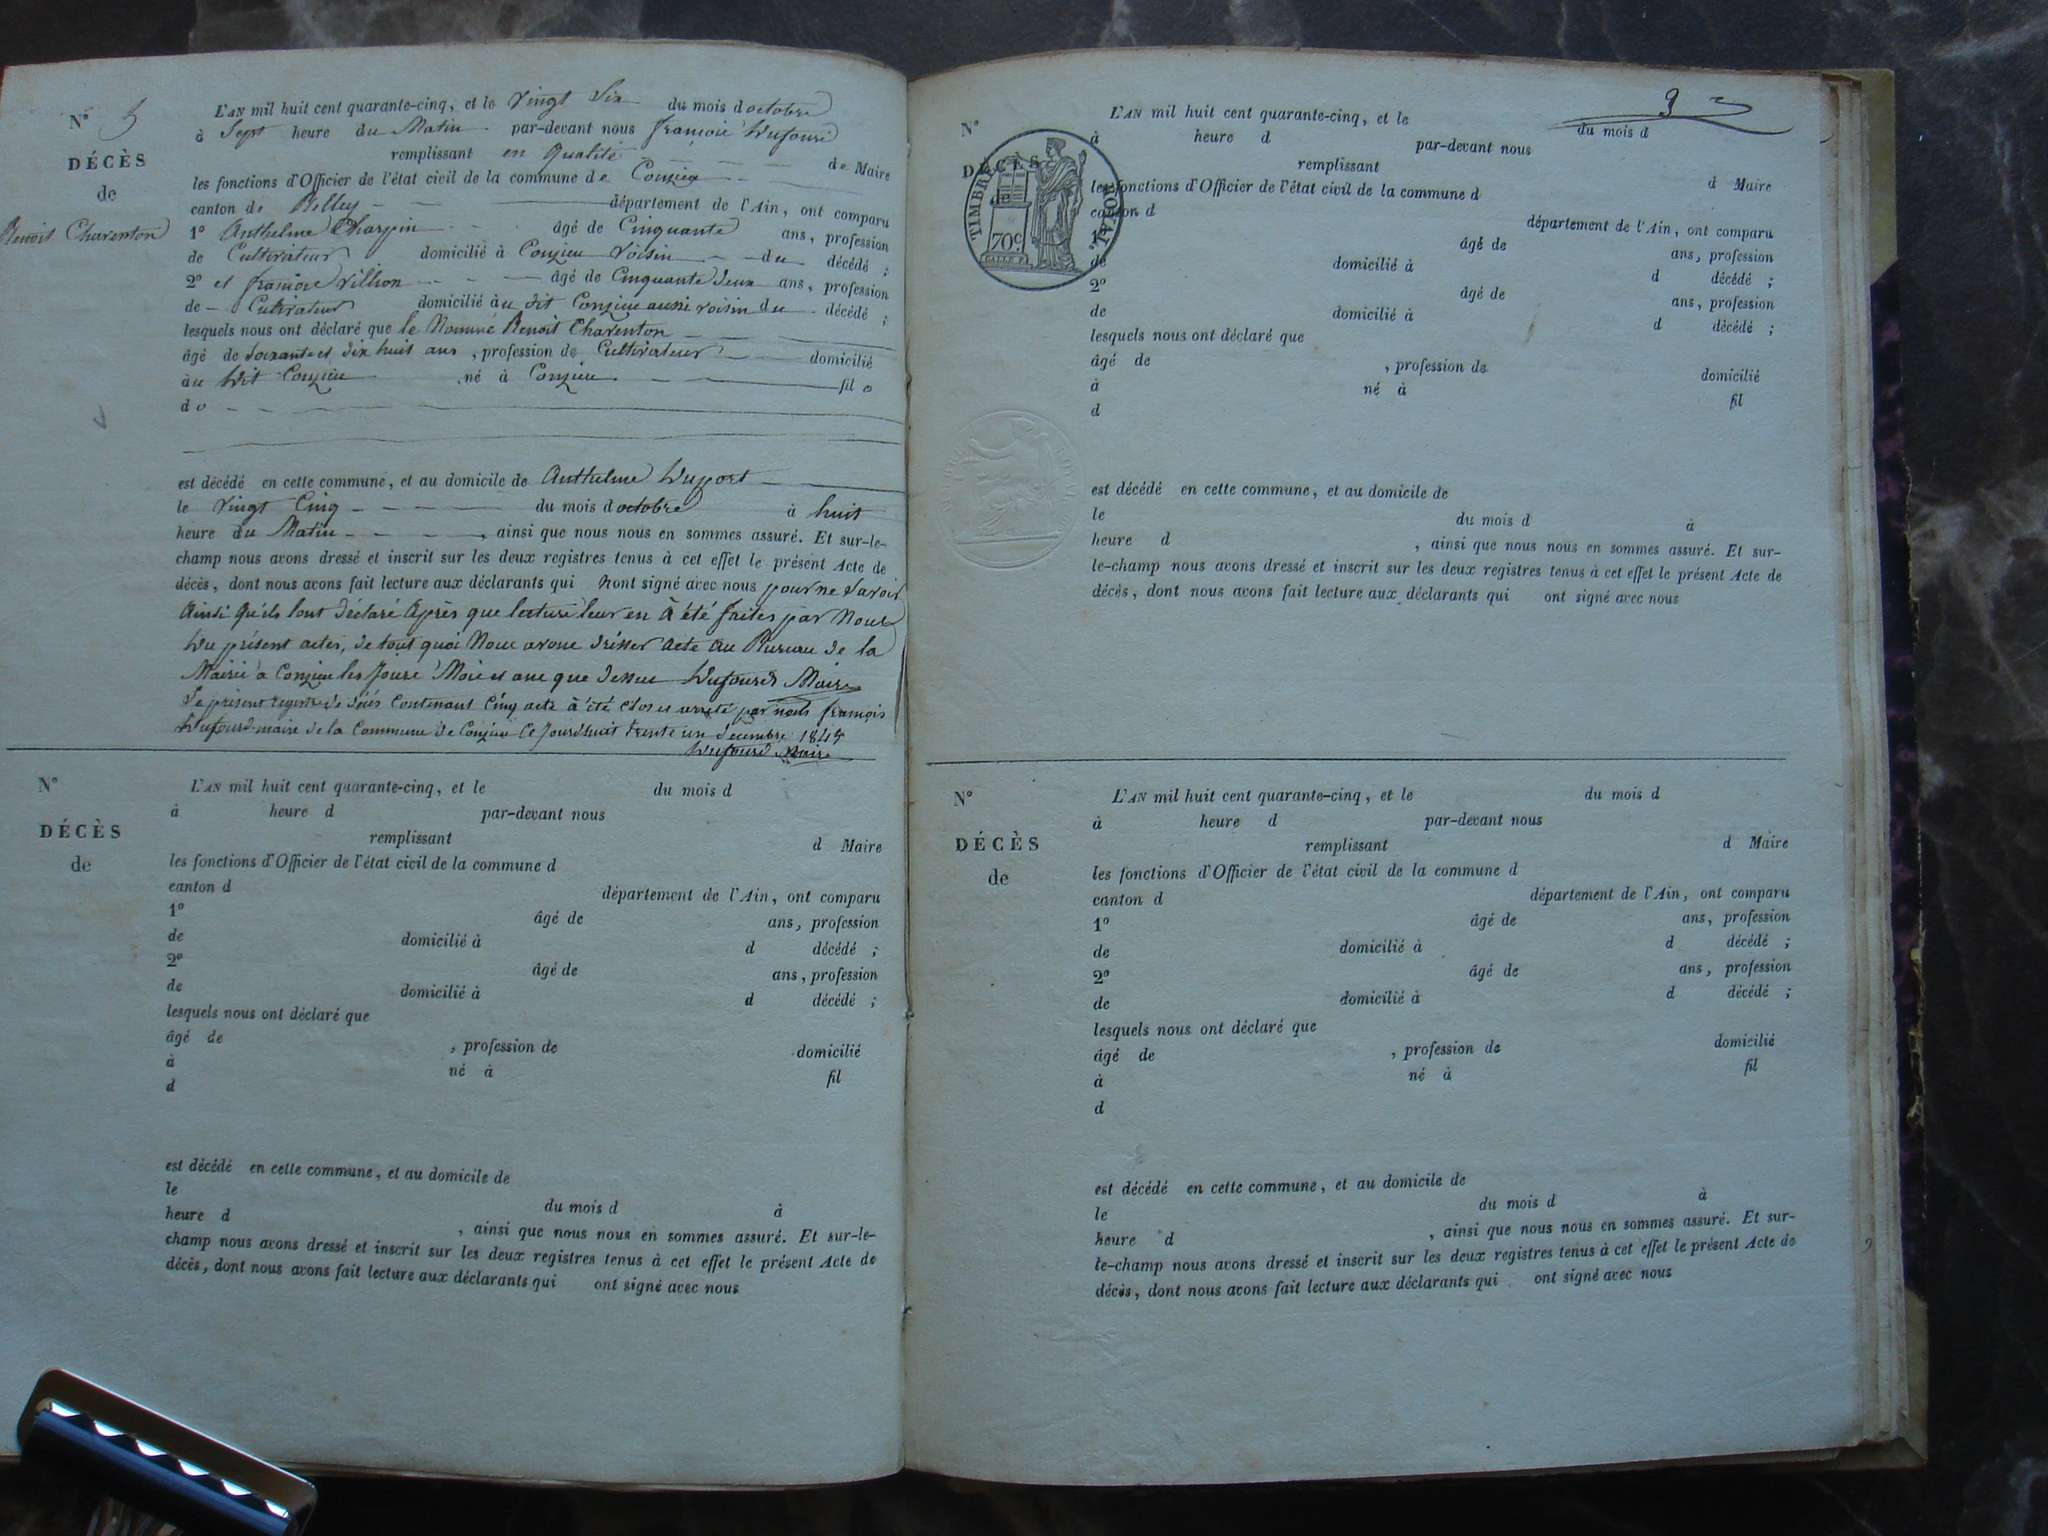 N° 5
DÉCÈS
de
Benoit Charenton
L'AN mil huit cent quarante-cinq, et le vingt Six du mois d octobre
à Sept heure du Matin par-devant nous françois Dufourd
remplissant en qualité de Maire
les fonctions d'Officier de l'état civil de la commune de Conzieu
canton de Belley département de l'Ain, ont comparu
1° Anthelme Charpin âgé de Cinquante ans, profession
de Cultivateur domicilié à Conzieu voisin du décédé ;
2° et françois Villion âgé de Cinquante deux ans, profession
de Cultivateur domicilié au dit Conzieu aussi voisin du décédé ;
lesquels nous ont déclaré que le Nommé Benoit Charenton
âgé de Soixante et dix huit ans, profession de Cultivateur domicilié
au dit Conzieu né à Conzieu fil
d
est décédé en cette commune, et au domicile de Anthelme Duport
le vingt Cinq du mois d octobre à huit
heure du Matin, ainsi que nous nous en sommes assuré. Et sur-le-
champ nous avons dressé et inscrit sur les deux registres tenus à cet effet le présent Acte de
décès, dont nous avons fait lecture aux déclarants qui nont signé avec nous pour ne Savoir
Ainsi quils lont déclaré Après que lecture leur en à été faites par Nous
du présent actes, de tout quoi Nous avons dresser acte au Bureau de la
Mairie à Conzieu les Jours Mois et ans que dessus Dufourd Maire
Le présent registre de décés contenant cinq acte à été clos et arrêté par nous françois
Dufourd maire de la Commune de Conzieu ce jourdhuit trente un décembre 1845
Dufourd Maire
N°
DÉCÈS
de
L'AN mil huit cent quarante-cinq, et le du mois d
à heure d par-devant nous
remplissant d Maire
les fonctions d'Officier de l'état civil de la commune d
canton d département de l'Ain, ont comparu
1° âgé de ans, profession
de domicilié à d décédé ;
2° âgé de ans, profession
de domicilié à d décédé ;
lesquels nous ont déclaré que
âgé de , profession de domicilié
à né à fil
d
est décédé en cette commune, et au domicile de
le du mois d à
heure d , ainsi que nous nous en sommes assuré. Et sur-le-
champ nous avons dressé et inscrit sur les deux registres tenus à cet effet le présent Acte de
décès, dont nous avons fait lecture aux déclarants qui ont signé avec nous
3
N°
DÉCÈS
de
TIMBRE ROYAL
70c.
L'AN mil huit cent quarante-cinq, et le du mois d
à heure d par-devant nous
remplissant d Maire
les fonctions d'Officier de l'état civil de la commune d
canton d département de l'Ain, ont comparu
1° âgé de ans, profession
de domicilié à d décédé ;
2° âgé de ans, profession
de domicilié à d décédé ;
lesquels nous ont déclaré que
âgé de , profession de domicilié
à né à fil
d
est décédé en cette commune, et au domicile de
le du mois d à
heure d , ainsi que nous nous en sommes assuré. Et sur-
le-champ nous avons dressé et inscrit sur les deux registres tenus à cet effet le présent Acte de
décès, dont nous avons fait lecture aux déclarants qui ont signé avec nous
N°
DÉCÈS
de
L'AN mil huit cent quarante-cinq, et le du mois d
à heure d par-devant nous
remplissant d Maire
les fonctions d'Officier de l'état civil de la commune d
canton d département de l'Ain, ont comparu
1° âgé de ans, profession
de domicilié à d décédé ;
2° âgé de ans, profession
de domicilié à d décédé ;
lesquels nous ont déclaré que
âgé de , profession de domicilié
à né à fil
d
est décédé en cette commune, et au domicile de
le du mois d à
heure d , ainsi que nous nous en sommes assuré. Et sur-
le-champ nous avons dressé et inscrit sur les deux registres tenus à cet effet le présent Acte de
décès, dont nous avons fait lecture aux déclarants qui ont signé avec nous